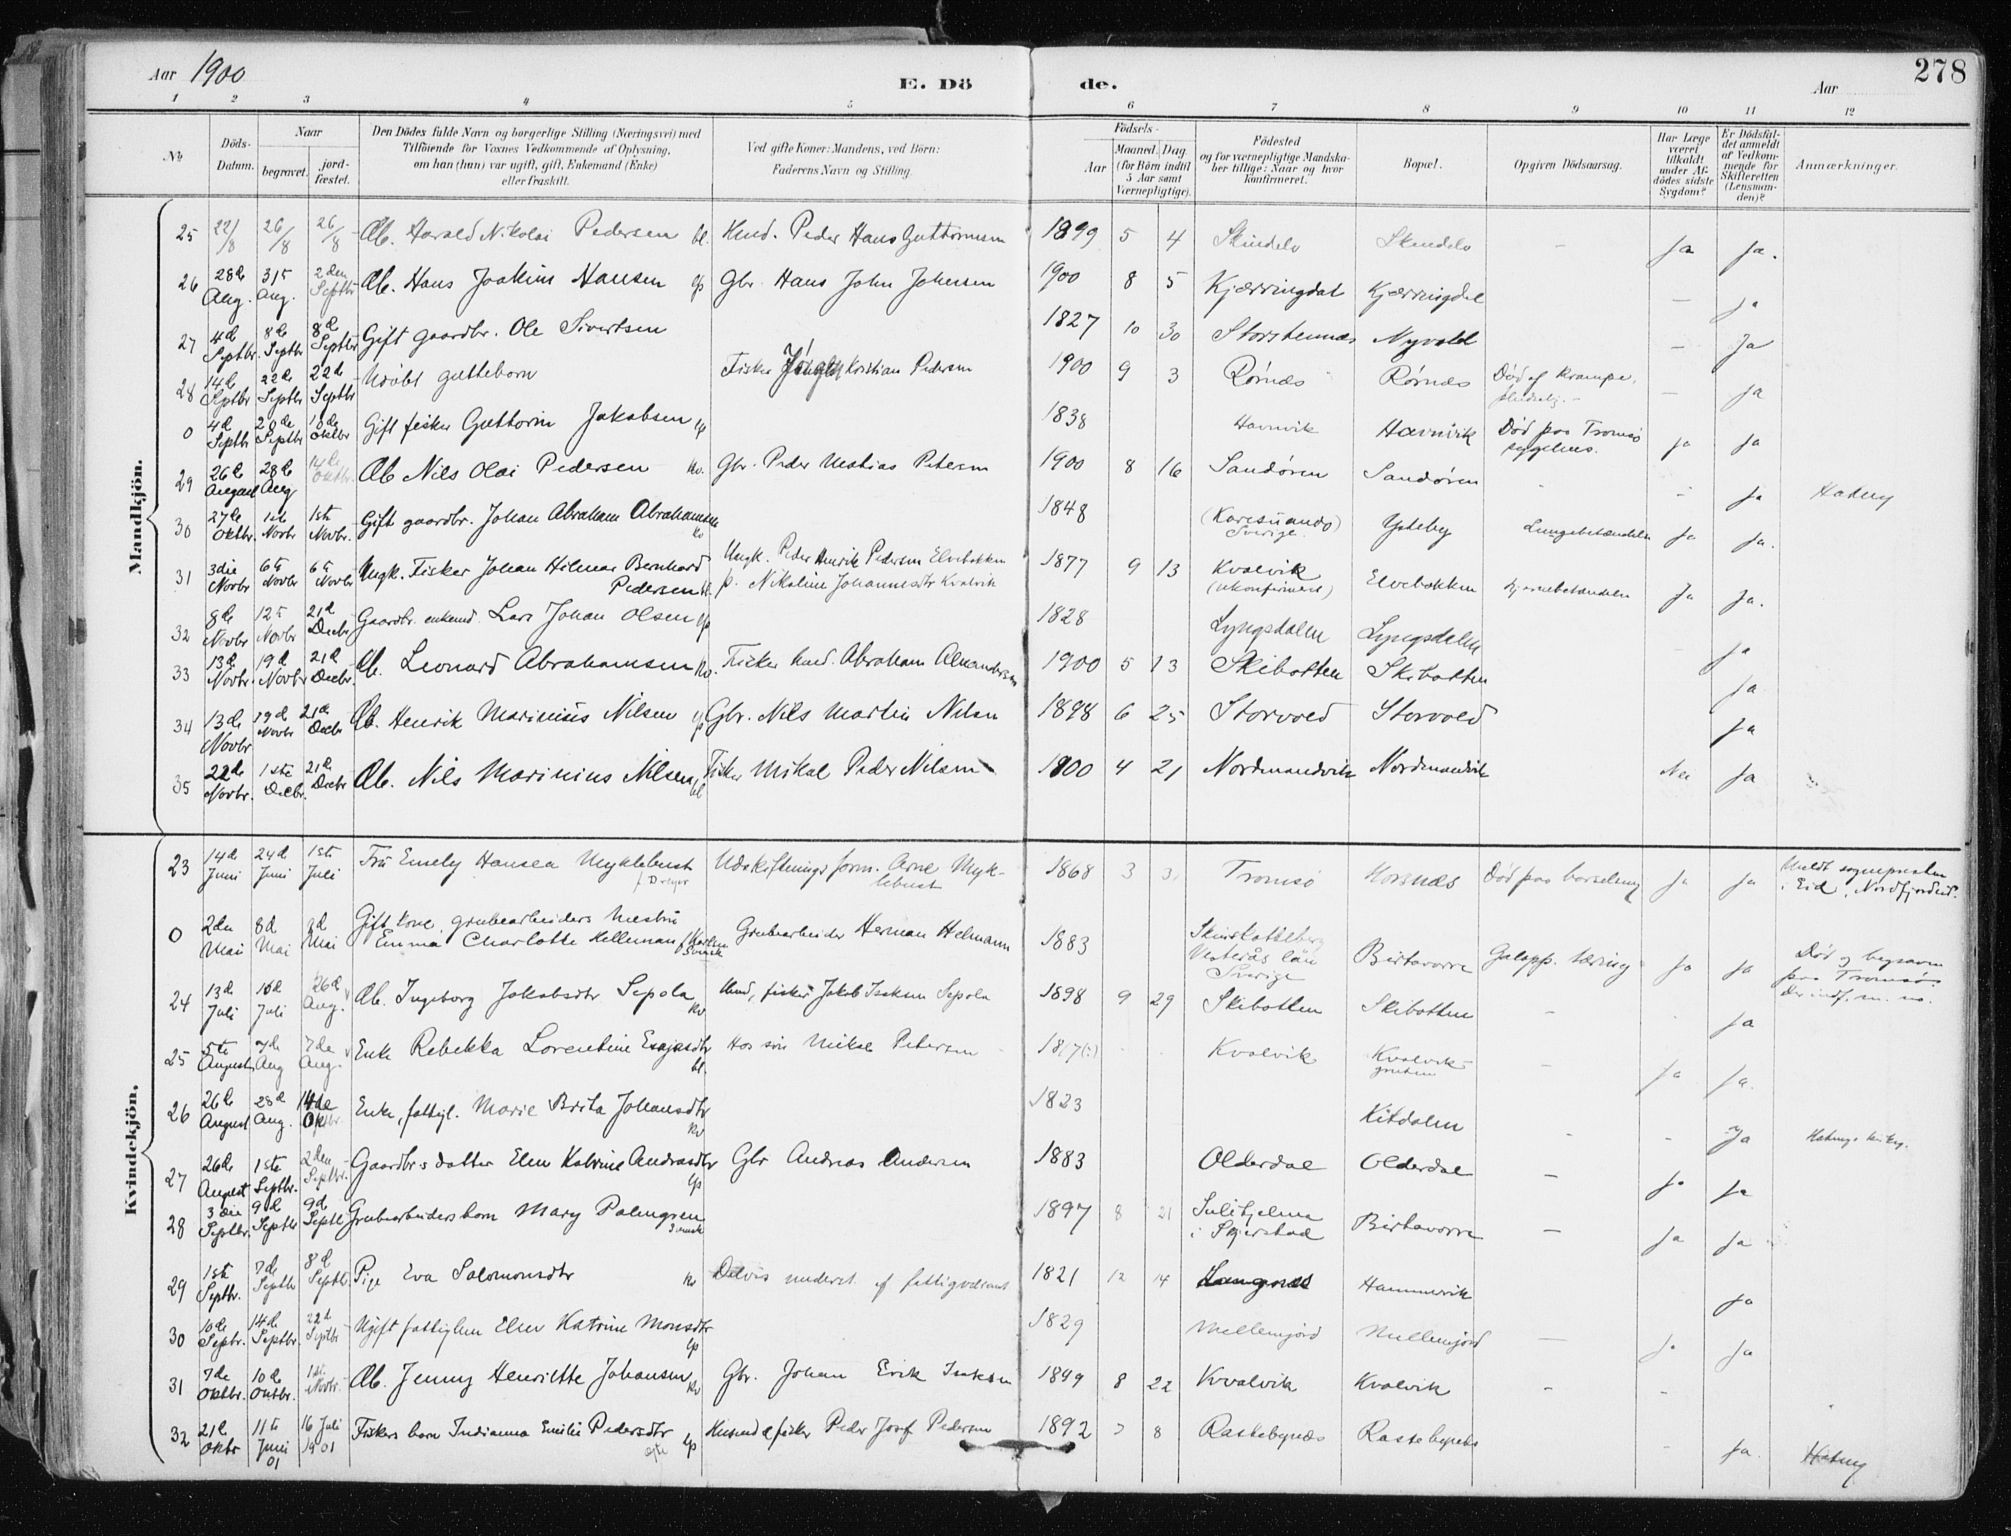 Aar 1900
E. Döde.
Aar
278
1 2 3 4 5 6 7 8 9 10 11 12
No
Döds-Datum.
Naar
begravet.
jord-fæstet.
Den Dödes fulde Navn og borgerlige Stilling (Næringsvei) med
Tilföiende for Voxnes Vedkommende af Oplysning,
om han (hun) var ugift, gift, Enkemand (Enke)
eller fraskilt.
Ved gifte Koner: Mandens, ved Börn:
Faderens Navn og Stilling.
Födsels-
Aar
Maaned. Dag.
(for Börn indtil
5 Aar samt
Værnepligtige).
Födested
og for værnepligtige Mandska-
ber tillige: Naar og hvor
konfirmeret.
Bopæl.
Opgiven Dödsaarsag.
Har Læge
været
tilkaldt
under Af-
dödes sidste
Sygdom?
Er Dödsfal-
det anmeldt
af Vedkom-
mende for
Skifteretten
(Lensman-
den)?
Anmærkninger.
Mandkjön.
25 22/8 26/8 26/8 Harald Nikolai Pedersen bl. Peder Hans Guttormsen 1899 5 4 Skindelv Skindelv - Ja Ja.
26 28de Aug. 31te Aug. 2den Septbr Hans Joakim Hansen Gbr. Hans John Johnsen 1900 8 5 Kjærringdal Kjærringdal - Ja
27 4d Septbr. 8de Septbr 8d Septbr Gift gaardbr. Ole Sivertsen 1827 10 30 Storstennæs Nyvold - Ja
28 14de Septbr 22de Septbr 22de Septbr Udöbt guttebarn Fisker Kristian Pedersen 1900 9 3 Rörnæs Rörnæs Död af Krampe. - Ja
0 4d Septbr 20de Septbr 18de Oktbr Gift fisker Guttorm Jakobsen 1838 Havnvik Havnvik Död paa Tromsö sygehus. Ja Ja
29 26de August 28de Aug 14de Oktbr. Nils Olai Pedersen kv. Gbr. Peder Mathias Petersen 1900 8 16 Sandören Sandören - - Ja Hateng
30 27de Oktbr. 1ste Novbr 1ste Novbr. Gift gaardbr. Johan Abraham Abrahamsen kv 1848 (Karesuando) Sverige. Yteby Lungebetændelse Ja Ja.
31 3die Novbr 6te Novbr 6te Novbr Ungk. Fisker Johan Hilmar Bernhard Pedersen Ungk. Peder Henrik Pedersen Elvebakken p. Nikoline Johannesdtr Kvalvik 1877 9 13 Kvalvik (ukonfirmeret) Elvebakken Hjernebetændelse Ja Ja.
32 8de Novbr 12te Novbr 21d Decbr Gaardbr. enkemd Lars Johan Olsen 1828 Lyngsdalen Lyngsdalen - Ja
33 13d Novbr. 19d Novbr 21d Decbr. Leonard Abrahamsen kv. Fisker Abraham Alexandersen 1900 5 13 Skibotten Skibotten Ja
34 13de Novbr 19d Novbr 21de Decbr Henrik Marinius Nilsen Gbr. Nils Martin Nilsen 1898 6 25 Storvold Storvold Ja
35 22de Novbr. 1ste Decbr. 21de Decbr Nils Marinius Nilsen bl Fisker Mikal Peder Nilsen 1900 4 21 Nordmandvik Nordmandvik Nei Ja
Kvindekjön.
23 14d Juni 24d Juni 1ste Juli Fru Emely Hansea Myklebust f. Dreyer Udskiftningsform. Arne Myklebust 1868 3 Tromsö Horsnæs Död paa barselseng Ja Ja Meldt sognepresten i Eid, Nordfjordeid.
0 2den Mai 8d Mai Mai Gift kone, grubearbeiders hustru Emma Charlotte Helleman Svensk Grubearbeider Herman Helmann 1883 Skinskatteberg Vesterås län Sverige Birtavarre Galopp. tæring Ja Ja Död og begraven paa Tromsö
24 13d Juli 16d Juli 26d Aug. Ingeborg Jakobsdtr Sepola kv fisker Jakob Isaksen Sepola 1898 9 29 Skibotten Skibotten - Ja
25 5te August 7de Aug 7de Aug. Enke Rebekka Lorentine Esajasdtr bl. Hos sön Mikal Petersen Kvalvik Kvalvik-gruben - Ja Ja.
26 26de August 28d Aug. 14de Oktbr. Enke, fattigl. Marie Brita Johansdtr kv 1823 Kitdalen - - Ja
27 26de August 1ste Septbr. 2den Septbr. Gaardbr.s datter Elen Katrine Andrasdtr Gbr Andreas Andersen 1883 Olderdal Olderdal - Ja Ja
28 3die Septbr. 9d Septbr 9d Septbr Grubearbeiders barn Mary Palmgren Svensk 1897 8 21 Sulitjelma i Skjerstad Birtavarre - Ja Ja
29 1ste Septbr. 7de Septbr 8d Septbr Pige Eva Salomonsdtr kv Delvis underst. af fattigvæsenet 1821 12 14 Langnæs Hammervik Ja
30 10de Septbr. 14de Septbr. 22d Septbr Ugift fattiglem Elen Katrine Monsdtr 1829 Mellemjord Mellemjord - Ja Ja
31 7de Oktbr. 10de Oktbr. 1ste Novbr. Jenny Henriette Johansen kv Gbr. Johan Erik Isaksen 1899 8 22 Kvalvik Kvalvik - -
32 21de Oktbr 11te Juni 01 16 Juli 1901 Fiskers barn Indianna Emilie Pedersdtr fisker Peder Josef Pedersen 1892 8 Rastebynæs Rastebynæs - Ja. Hateng